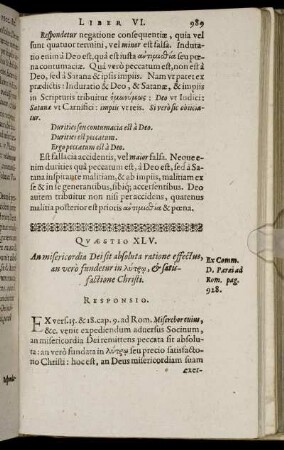 LIBER VI. 989
Respondetur negatione consequentiæ, quia vel
sunt quatuor termini, vel minor est falsa. Indura-
tio enim à Deo est, quâ est iusta ἀντιμισθία seu pœ-
na contumaciæ. Quâ verò peccatum est, non est à
Deo, sed à Satana & ipsis impiis. Nam vt patet ex
prædictis: Induratio & Deo, & Satanæ, & impiis
in Scripturis tribuitur: Deo vt Iudici:
Satanæ vt Carnifici: impiis vt reis. Si verò sic conicia-
tur.
Durities seu contumacia est à Deo.
Durities est peccatum.
Ergo peccatum est à Deo.
Est fallacia accidentis, vel maior falsa. Neque e-
nim durities quâ peccatum est, à Deo est, sed à Sa-
tana inspirante malitiam, & ab impiis, malitiam ex
se & in se generantibus, sibiq; accersentibus. Deo
autem tribuitur non nisi per accidens, quatenus
malitia posterior est prioris ἀντιμισθία & pœna.
QVÆSTIO XLV.
An misericordia Dei sit absoluta ratione effectus,
an verò fundetur in λύτρῳ, & satis-
factione Christi.
Ex Comm.
D. Parei ad
Rom. pag.
928.
RESPONSIO.
EX vers. 15. & 18. cap. 9. ad Rom. Miserebor eius,
&c. venit expediendum adversus Socinum,
an misericordia Dei remittens peccata sit absolu-
ta: an verò fundata in λύτρῳ seu precio satisfacto-
rio Christi: hoc est, an Deus misericordiam suam
exer-